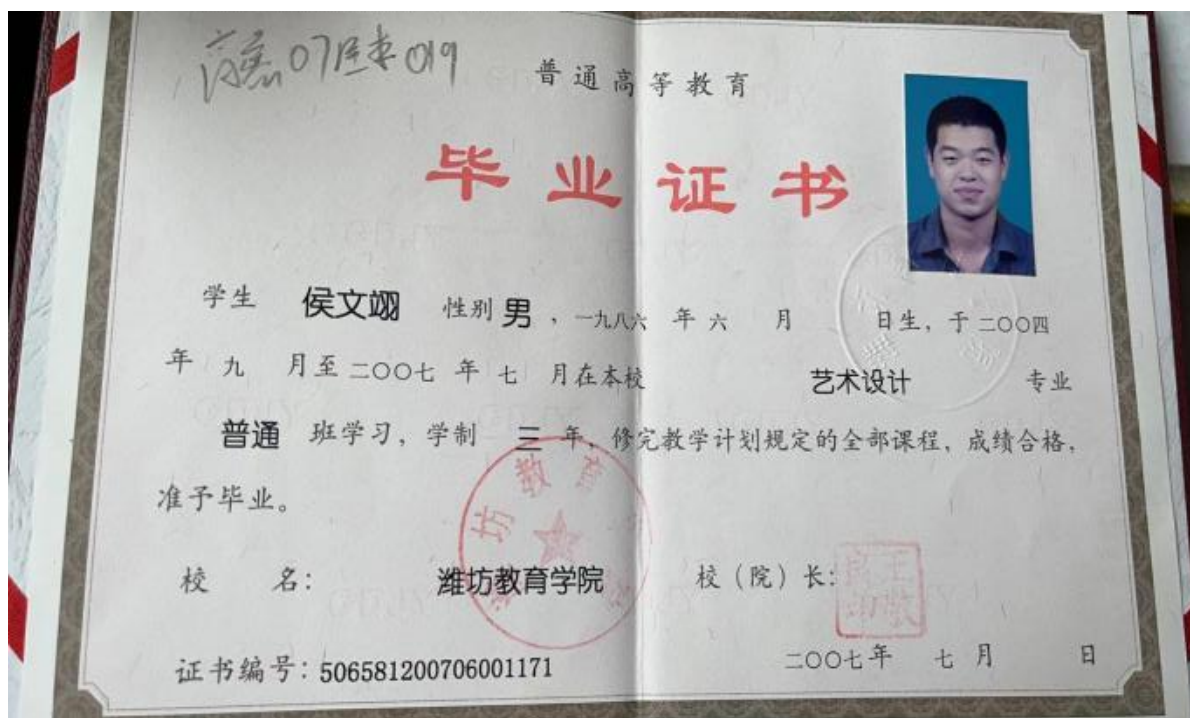 07 019
普通高等教育
毕业证书
学生 侯文翊 性别 男，一九八六 年 六 月 日生，于 二〇〇四
年 九 月至 二〇〇七 年 七 月在本校 艺术设计 专业
普通 班学习，学制 三 年，修完教学计划规定的全部课程，成绩合格，
准予毕业。
校 名： 潍坊教育学院 校（院）长：
证书编号：506581200706001171
二〇〇七年 七 月 日
坊教育